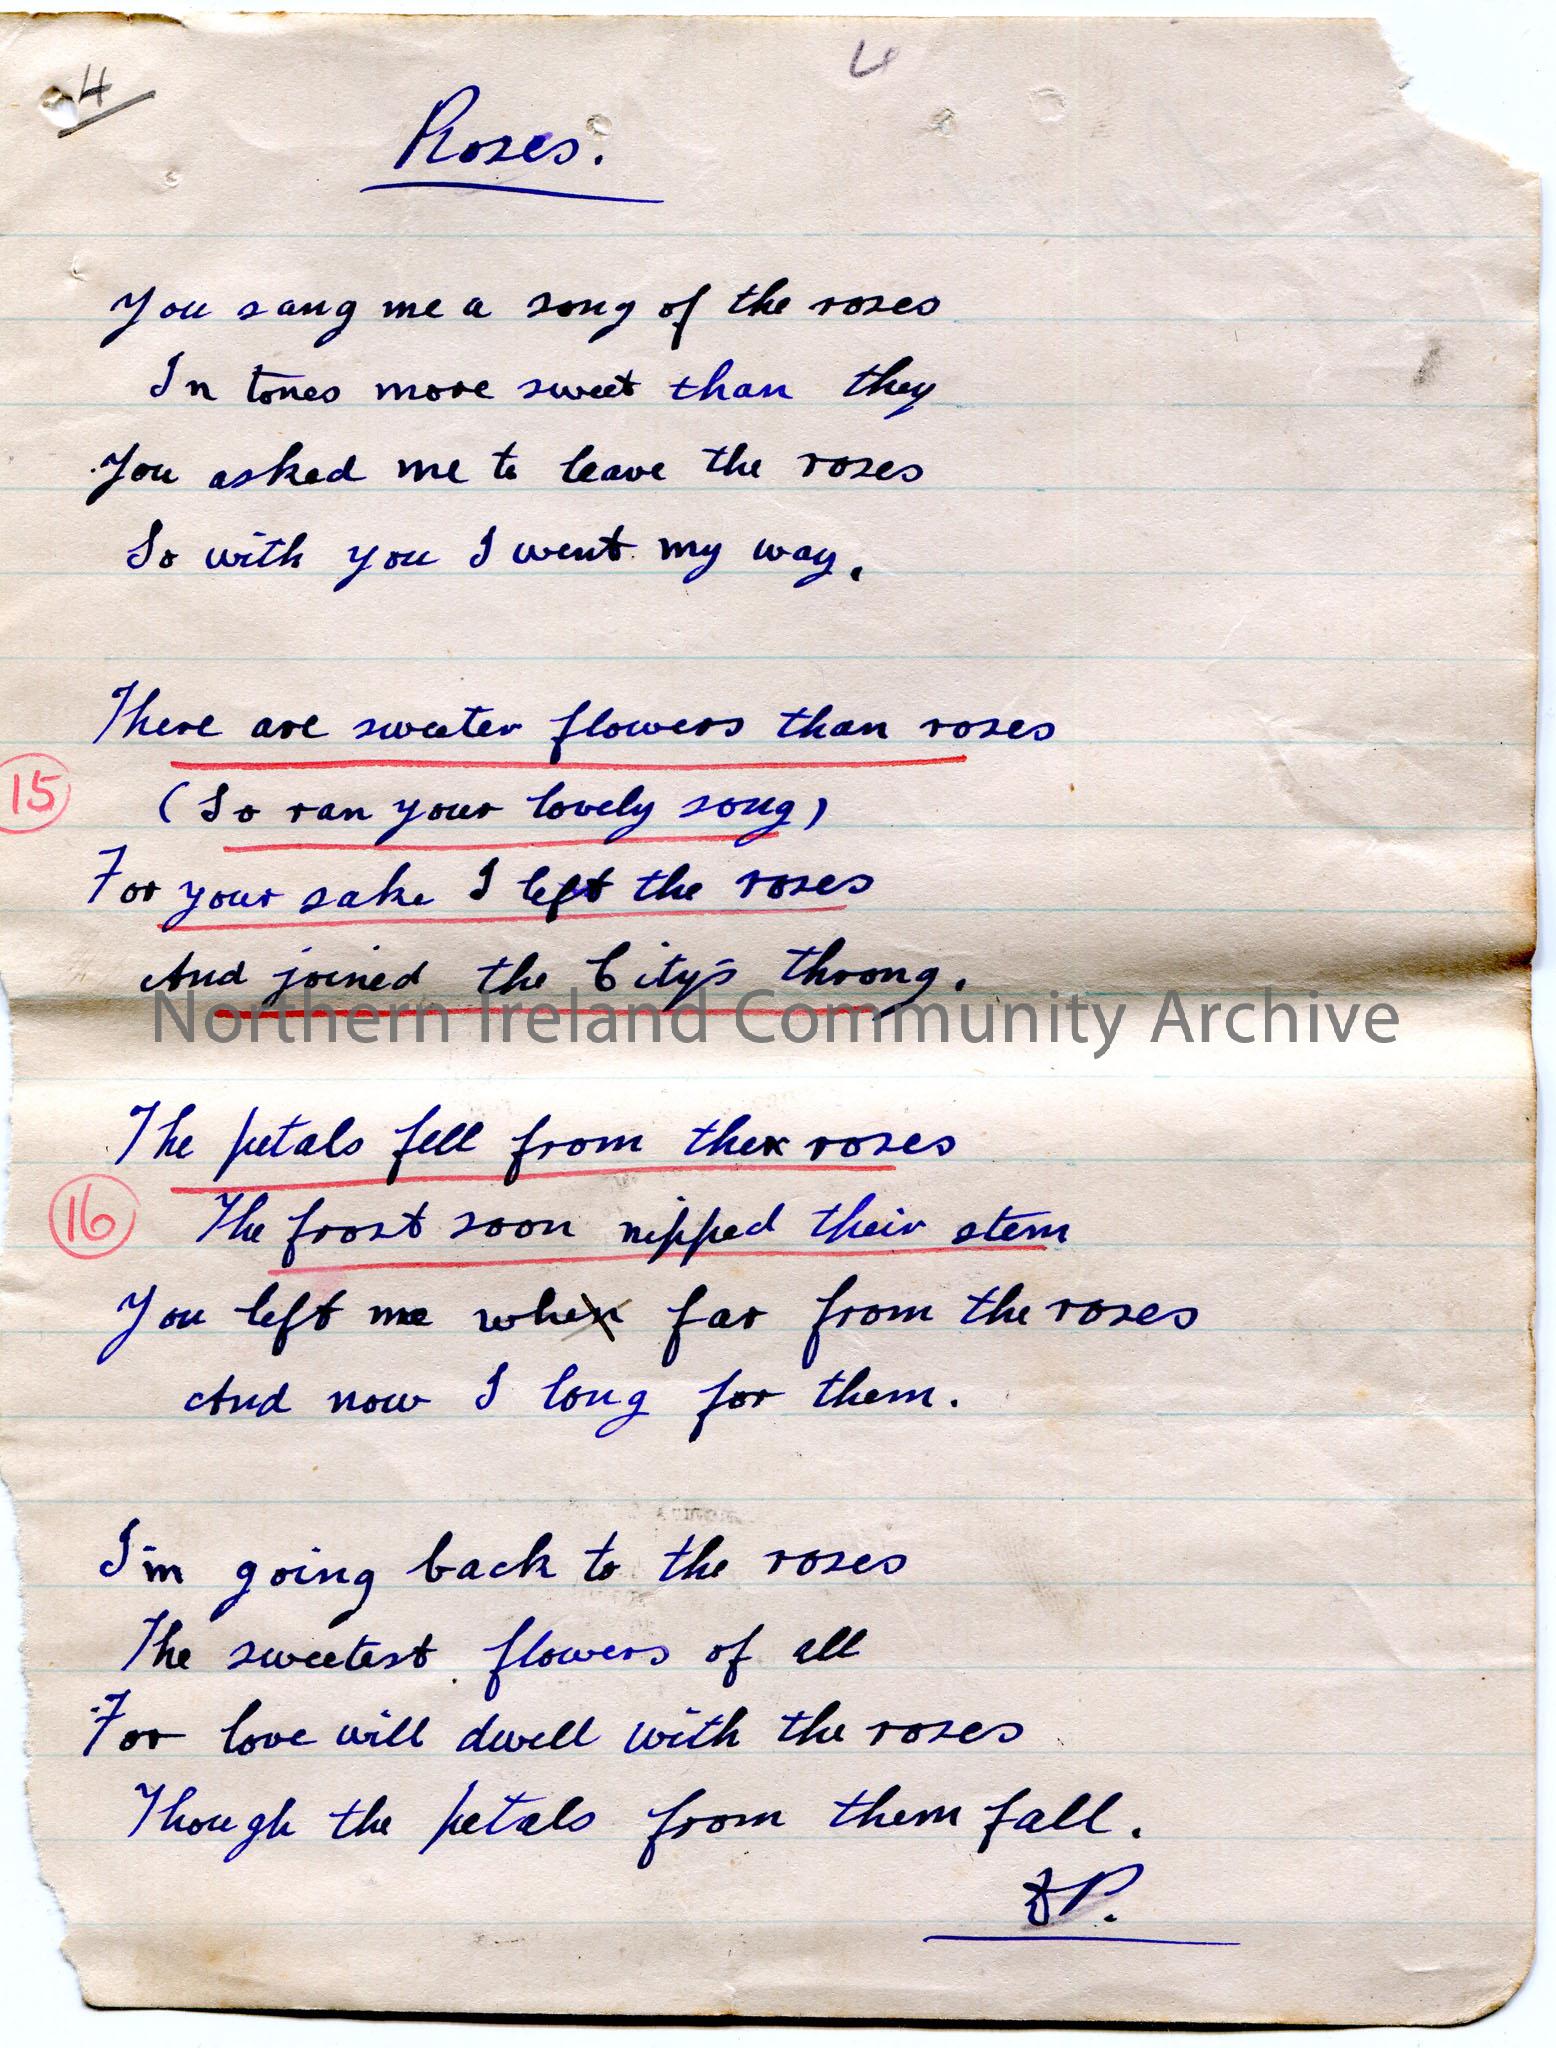 4
Roses.
You sang me a song of the roses
In tones more sweet than they
You asked me to leave the roses
So with you I went my way.
There are sweeter flowers than roses
15
(So ran your lovely song)
For your sake I left the roses
And joined the City's throng.
Northern Ireland Community Archive
The petals fell from the roses
16
The frost soon nipped their stem
You left me when far from the roses
And now I long for them.
I'm going back to the roses
The sweetest flowers of all
For love will dwell with the roses
Though the petals from them fall.